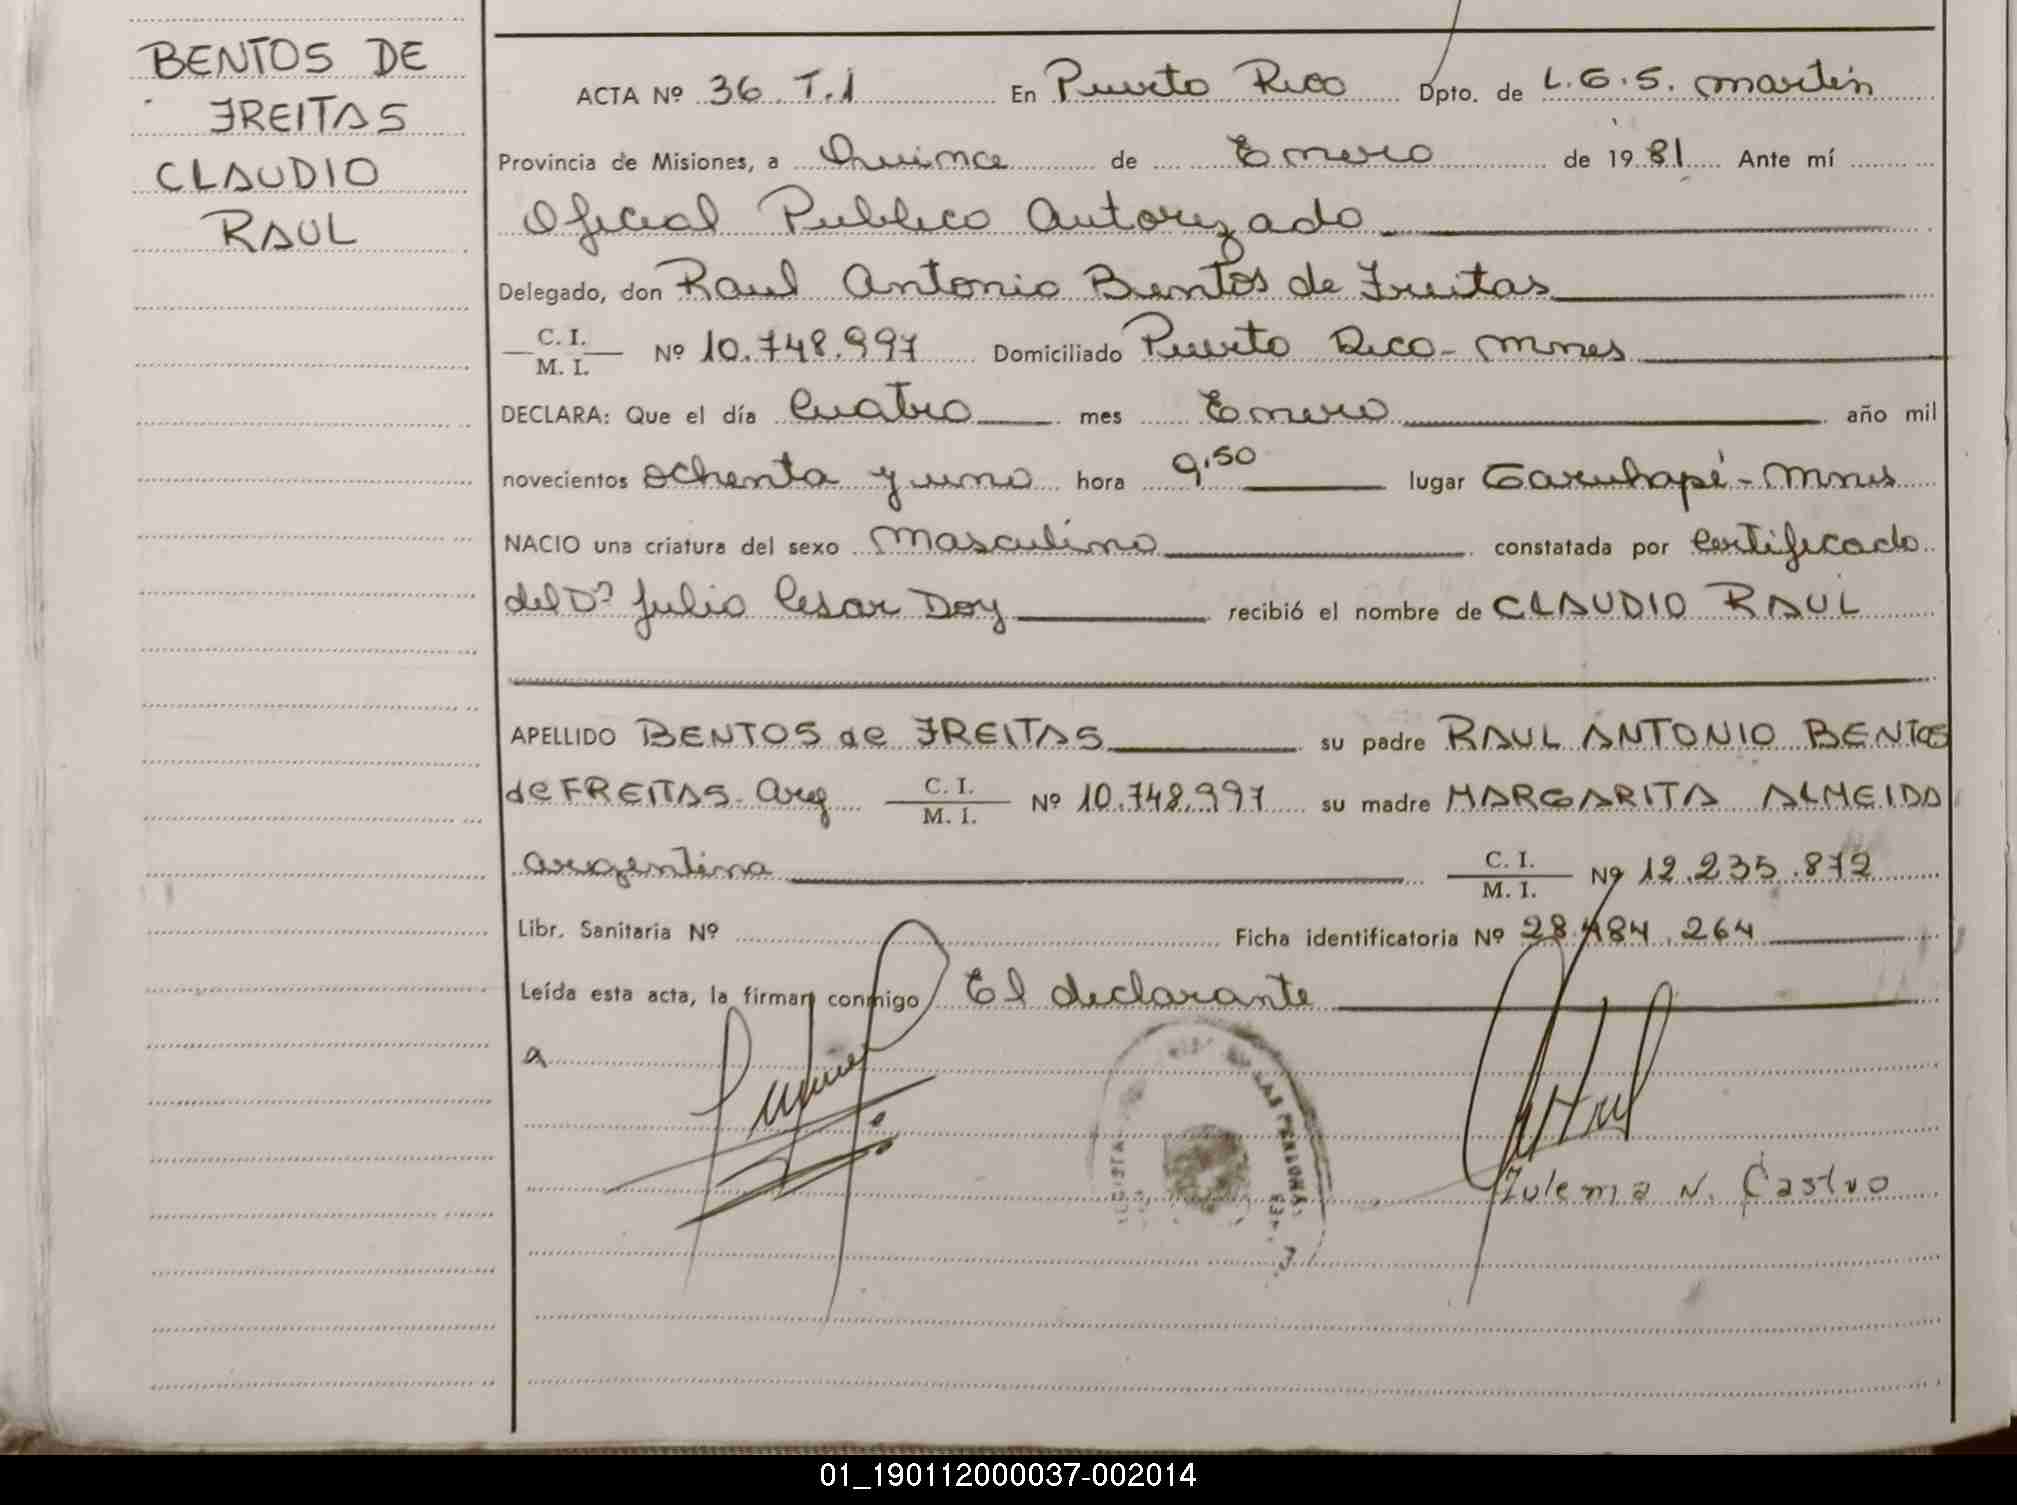 BENTOS DE
FREITAS
CLAUDIO
RAUL
ACTA Nº 36 T.1 En Puerto Rico Dpto. de L.G.S. Martín
Provincia de Misiones, a Quince de Enero de 1981 Ante mí
Oficial Publico Autorizado
Delegado, don Raul Antonio Bentos de Freitas
C. I.
M. I. Nº 10.748.997 Domiciliado Puerto Rico - Mnes
DECLARA: Que el día Cuatro mes Enero año mil
novecientos ochenta y uno hora 9.50 lugar Garuhapé - Mnes
NACIO una criatura del sexo Masculino constatada por Certificado
del Dr Julio Cesar Doy recibió el nombre de CLAUDIO RAUL
APELLIDO BENTOS de FREITAS su padre RAUL ANTONIO BENTOS
de FREITAS - Arg C. I. M. I. Nº 10.748.997 su madre MARGARITA ALMEIDA
argentina C. I. M. I. Nº 12.235.872
Libr. Sanitaria Nº Ficha identificatoria Nº 28.484.264
Leída esta acta, la firman conmigo El declarante
a
LAS PERSONAS
Zulema N. Castro
01_190112000037-002014